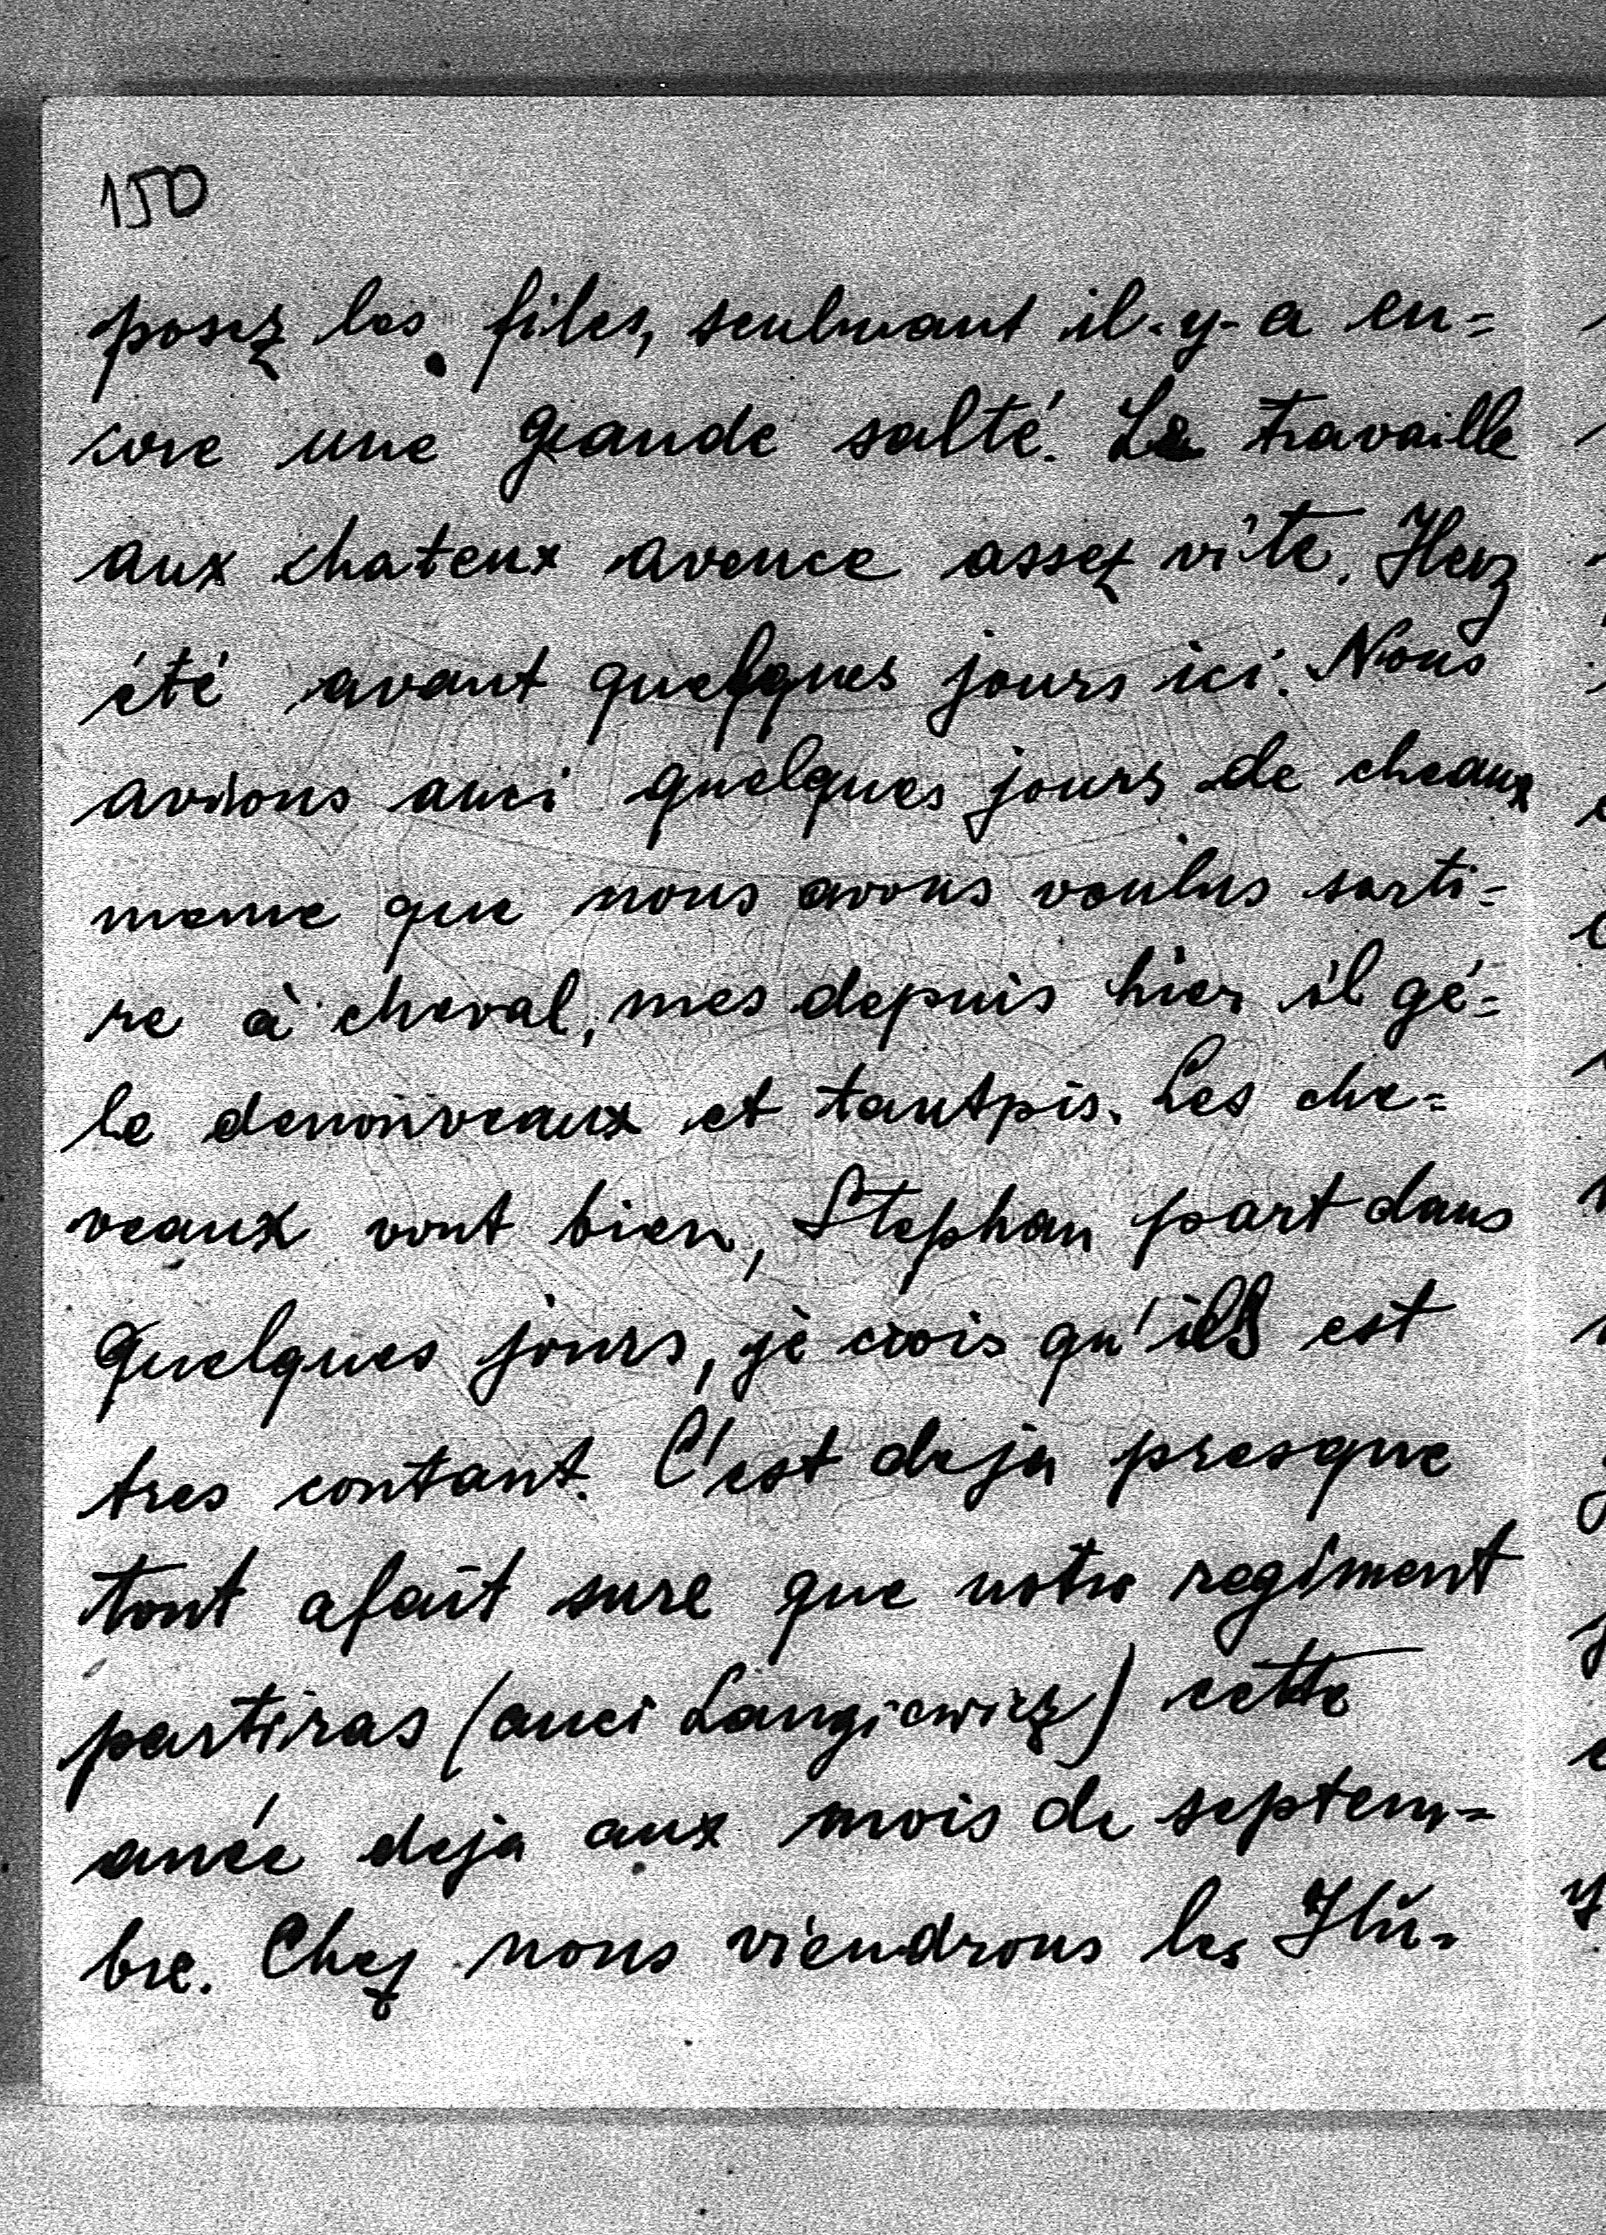 150
posez les files, seulmant il-y-a en=
core une grande salté. Le travaille
aux chateux avence assez vite. Herz
été avant quelques jours ici. Nous
avions auci quelques jours de cheaux
meme que nous avons voulus sorti=
re à cheval, mes depuis hier il gé=
le denouveaux et tantpis. Les che=
veaux vont bien, Stephan part dans
quelques jours, je crois qu'ils est
tres contant. C'est deja presque
tout afait sure que notre regiment
partiras (auci Langiewicz) cette
anée deja aux mois de septem=
bre. Chez nous viendrons les